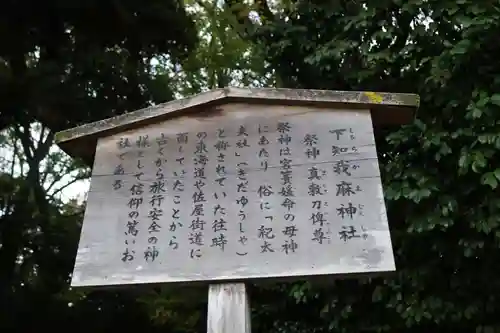 下我麻神社
祭神 真敷刀俾尊
祭神は宮簀媛命の母神
にあたり 俗に「紀太
夫社」(きだゆうしゃ)
と称されていた往時
の東海道や佐屋街道に
面していたことから
古くから旅行安全の神
様として信仰の篤いお
社である